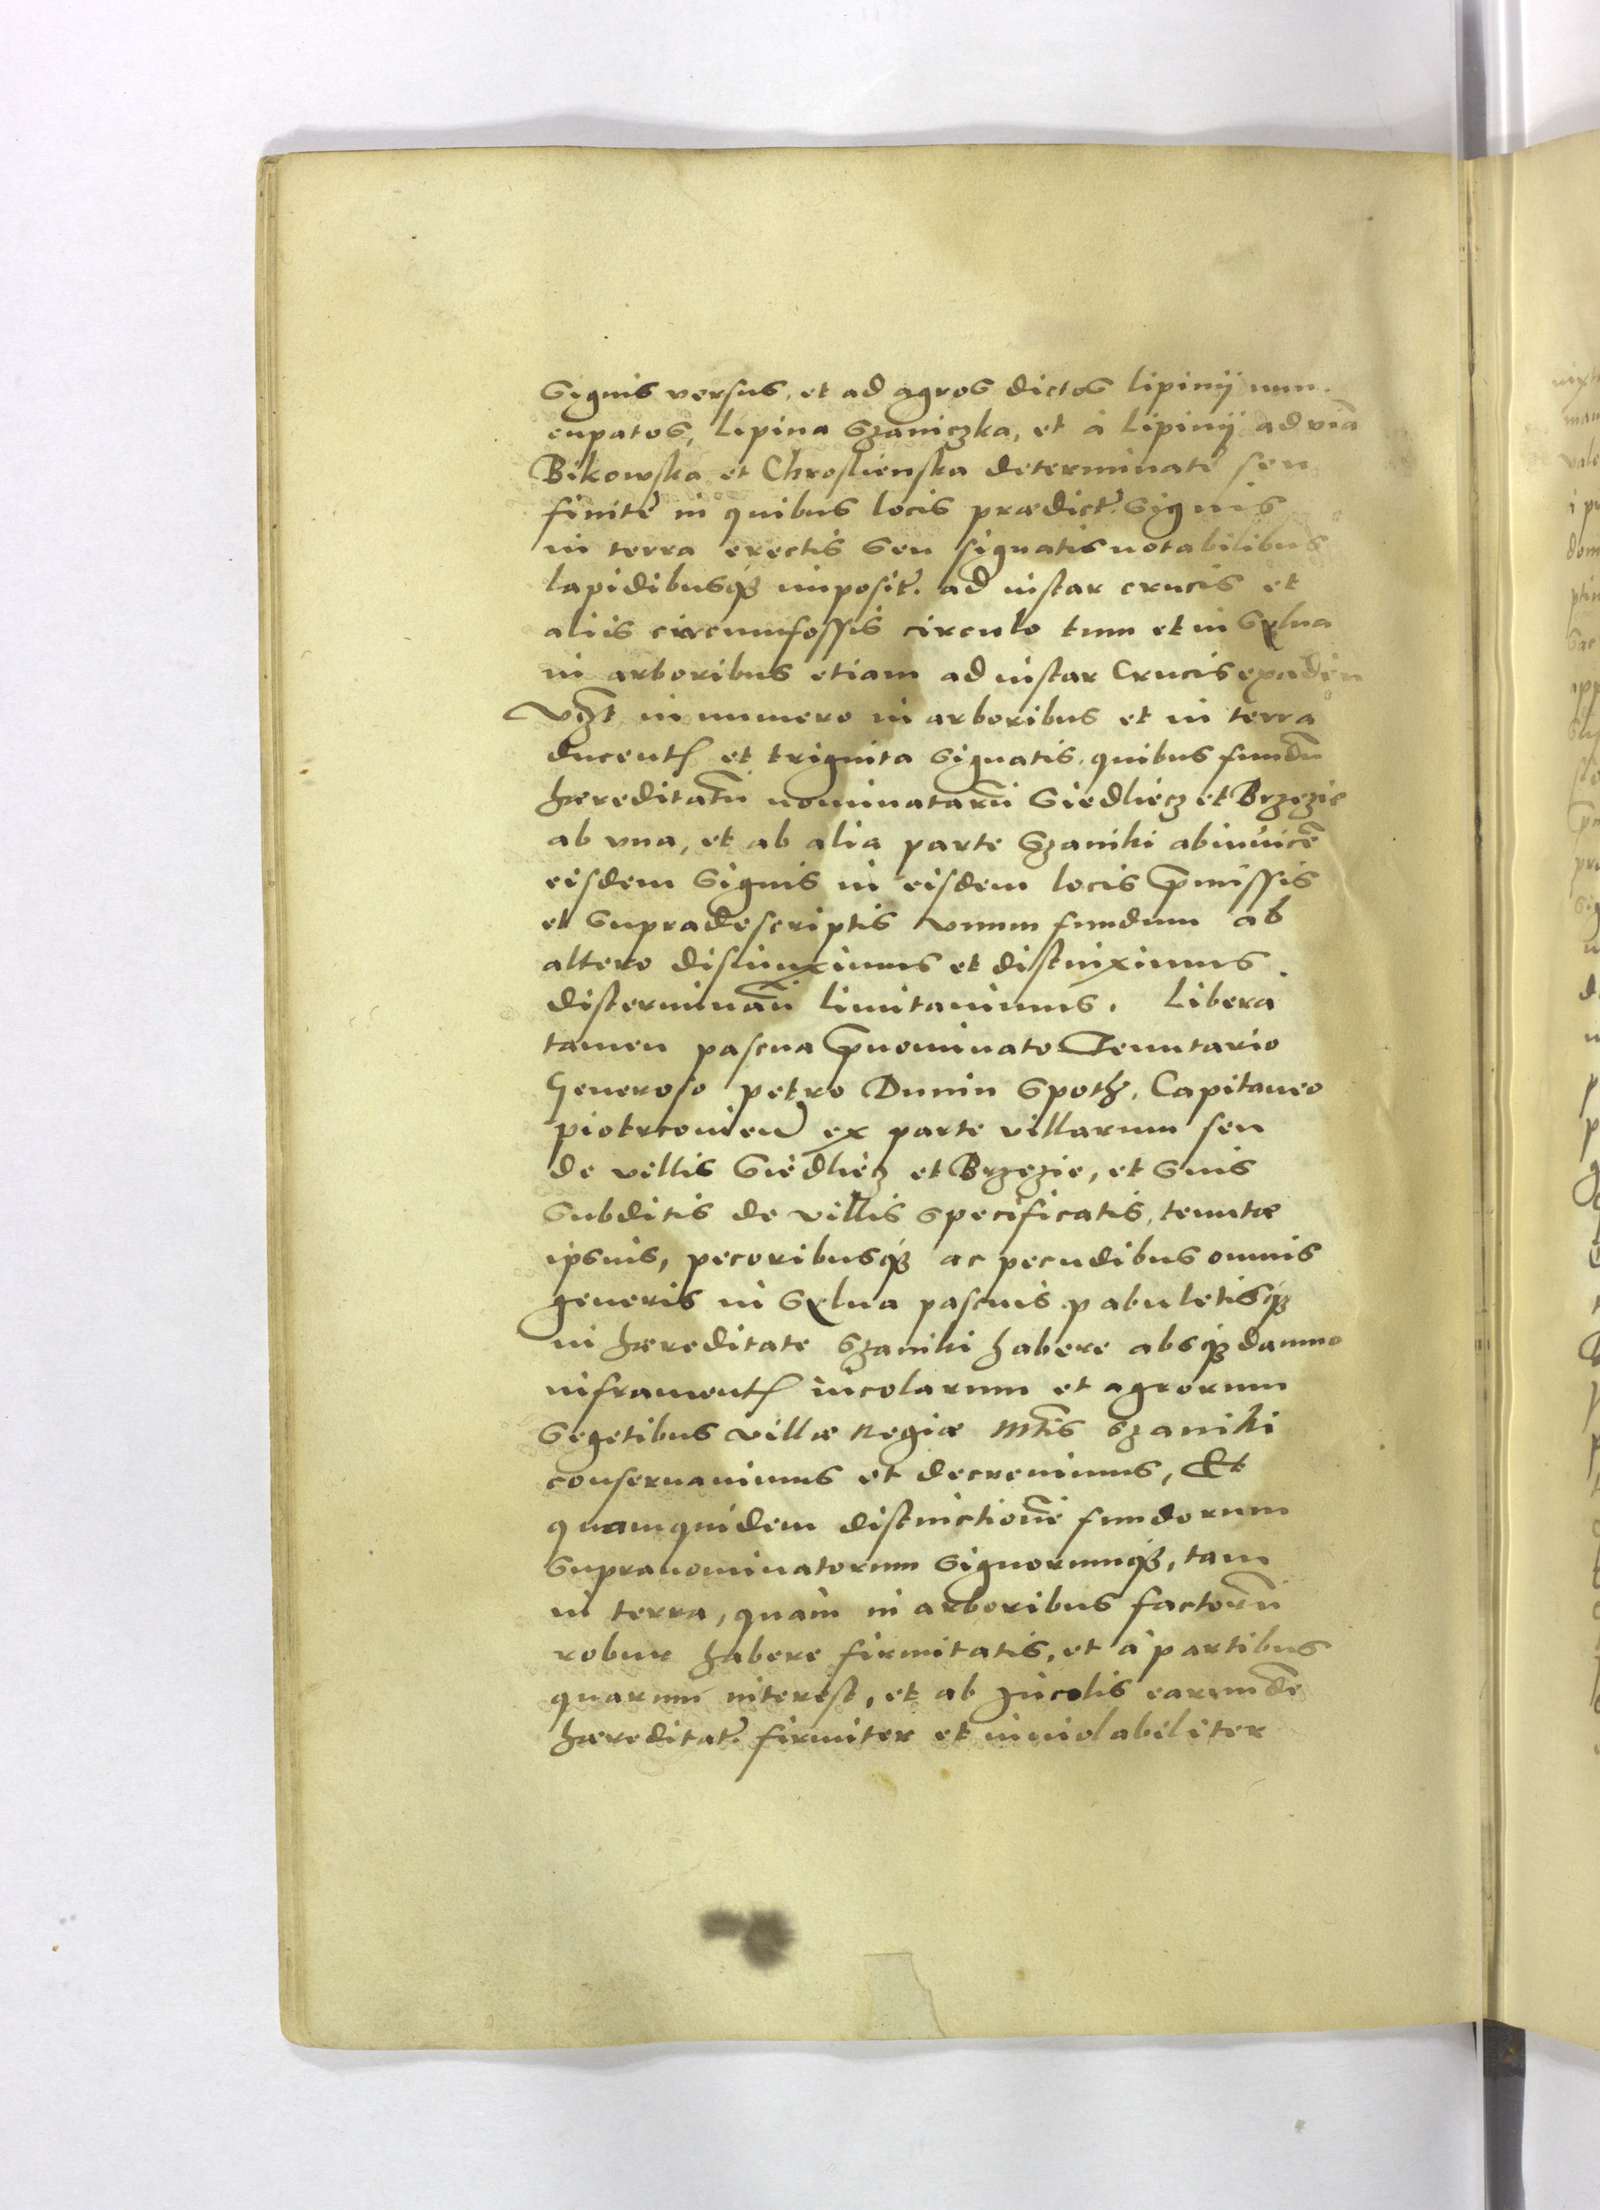 Signis versus, et ad agros dictos Lipinij nun-
cupatos, Lipina Szaniczka, et à Lipinij ad viã
Bikowska et Chroslienska determinatè seu
finitè in quibus locis prædict. Signis
in terra erectis seu signatis notabilibus
lapidibusq3 imposit. ad instar crucis et
aliis circumfossis circulo tum et in Sylua
in arboribus etiam ad instar Crucis
in numero in arboribus et in terra
ducent et triginta signatis, quibus fundũ
hæreditatũ nominatarũ Siedliecz et Brzezie
ab vna, et ab alia parte Szaniki abinuicẽ
eisdem signis in eisdem locis p̃missis
et supradescriptis vnum fundum ab
altero disiunximus et distinximus
disterminãũ limitauimus. Libera
tamen pascua p̃nominato Tenutario
Generoso Petro Dunin Spoth, Capitaneo
Piotrcouien ex parte villarum seu
de villis Siedliecz et Brzezie, et suis
subditis de villis specificatis, tenutæ
ipsius, pecoribusq3 ac pecudibus omnis
generis in Sylua pascuis pabuletisq3
in hæreditate Szaniki habere absq3 damno
inframent incolarum et agrorum
segetibus villæ Regiæ Mtis Szaniki
conseruauimus et decreuimus, Et
quamquidem distinctionẽ fundorum
supranominatorum signorumq3, tam
in terra, quàm in arboribus factorũ
robur habere firmitatis, et à partibus
quarum interest, et ab Incolis earundẽ
hæreditat. firmiter et inuiolabiliter